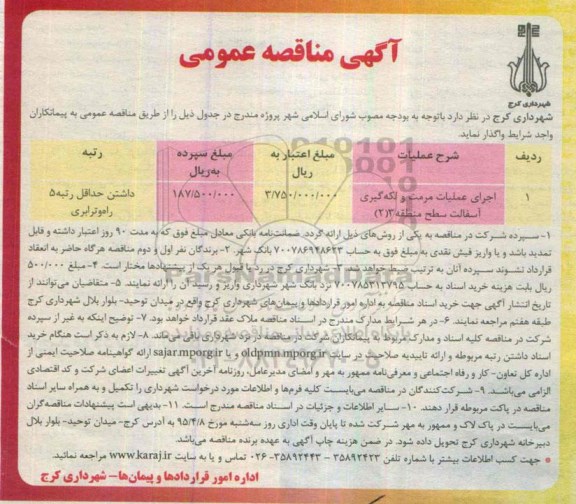 آگهی مناقصه عمومی
شهرداری کرج
شهرداری کرج در نظر دارد باتوجه به بودجه مصوب شورای اسلامی شهر پروژه مندرج در جدول ذیل را از طریق مناقصه عمومی به پیمانکاران
واجد شرایط واگذار نماید.
ردیف شرح عملیات مبلغ اعتبار به ریال مبلغ سپرده به‌ریال رتبه
۱ اجرای عملیات مرمت و لکه‌گیری آسفالت سطح منطقه۳(۲) ۳/۷۵۰/۰۰۰/۰۰۰ ۱۸۷/۵۰۰/۰۰۰ داشتن حداقل رتبه۵ راه‌وترابری
۱- سپرده شرکت در مناقصه به یکی از روش‌های ذیل ارائه گردد. ضمانت‌نامه بانکی معادل مبلغ فوق که به مدت ۹۰ روز اعتبار داشته و قابل
تمدید باشد و یا واریز فیش نقدی به مبلغ فوق به حساب ۷۰۰۷۸۶۹۴۸۶۲۳ بانک شهر. ۲- برندگان نفر اول و دوم مناقصه هرگاه حاضر به انعقاد
قرارداد نشوند سپرده آنان به ترتیب ضبط خواهد شد. ۳- شهرداری کرج در رد یا قبول هر یک از پیشنهادها مختار است. ۴- مبلغ ۵۰۰/۰۰۰
ریال بابت هزینه خرید اسناد به حساب ۷۰۰۷۸۵۳۱۲۷۹۵ نزد بانک شهر شهرداری واریز و رسید آن را ارائه نمایند. ۵- متقاضیان می‌توانند از
تاریخ انتشار آگهی جهت خرید اسناد مناقصه به اداره امور قراردادها و پیمان‌های شهرداری کرج واقع در میدان توحید- بلوار بلال شهرداری کرج
طبقه هفتم مراجعه نمایند. ۶- در هر شرایط مدارک مندرج در اسناد مناقصه ملاک عقد قرارداد خواهد بود. ۷- توضیح اینکه به غیر از سپرده
شرکت در مناقصه کلیه اسناد و مدارک مربوط به پیمانکاران شرکت در مناقصه نزد شهرداری باقی می‌ماند. ۸- لازم به ذکر است هنگام خرید
اسناد داشتن رتبه مربوطه و ارائه تاییدیه صلاحیت در سایت oldpmn.mporg.ir و یا sajar.mporg.ir ارائه گواهینامه صلاحیت ایمنی از
اداره کل تعاون- کار و رفاه اجتماعی و معرفی‌نامه ممهور به مهر و امضای مدیرعامل، روزنامه آخرین آگهی تغییرات اعضای شرکت و کد اقتصادی
الزامی می‌باشد. ۹- شرکت‌کنندگان در مناقصه می‌بایست کلیه فرم‌ها و اطلاعات مورد درخواست شهرداری را تکمیل و به همراه سایر اسناد
مناقصه در پاکت مربوطه قرار دهند. ۱۰- سایر اطلاعات و جزئیات در اسناد مناقصه مندرج است. ۱۱- بدیهی است پیشنهادات مناقصه‌گران
می‌بایست در پاک لاک و ممهور به مهر شرکت شده تا پایان وقت اداری روز سه‌شنبه مورخ ۹۵/۴/۸ به آدرس کرج- میدان توحید- بلوار بلال
دبیرخانه شهرداری کرج تحویل داده شود. در ضمن هزینه چاپ آگهی به عهده برنده مناقصه می‌باشد.
جهت کسب اطلاعات بیشتر با شماره تلفن ۳۵۸۹۲۴۲۳ - ۳۵۸۹۲۴۴۳-۰۲۶ تماس و یا به سایت www.karaj.ir مراجعه نمائید.
اداره امور قراردادها و پیمان‌ها- شهرداری کرج